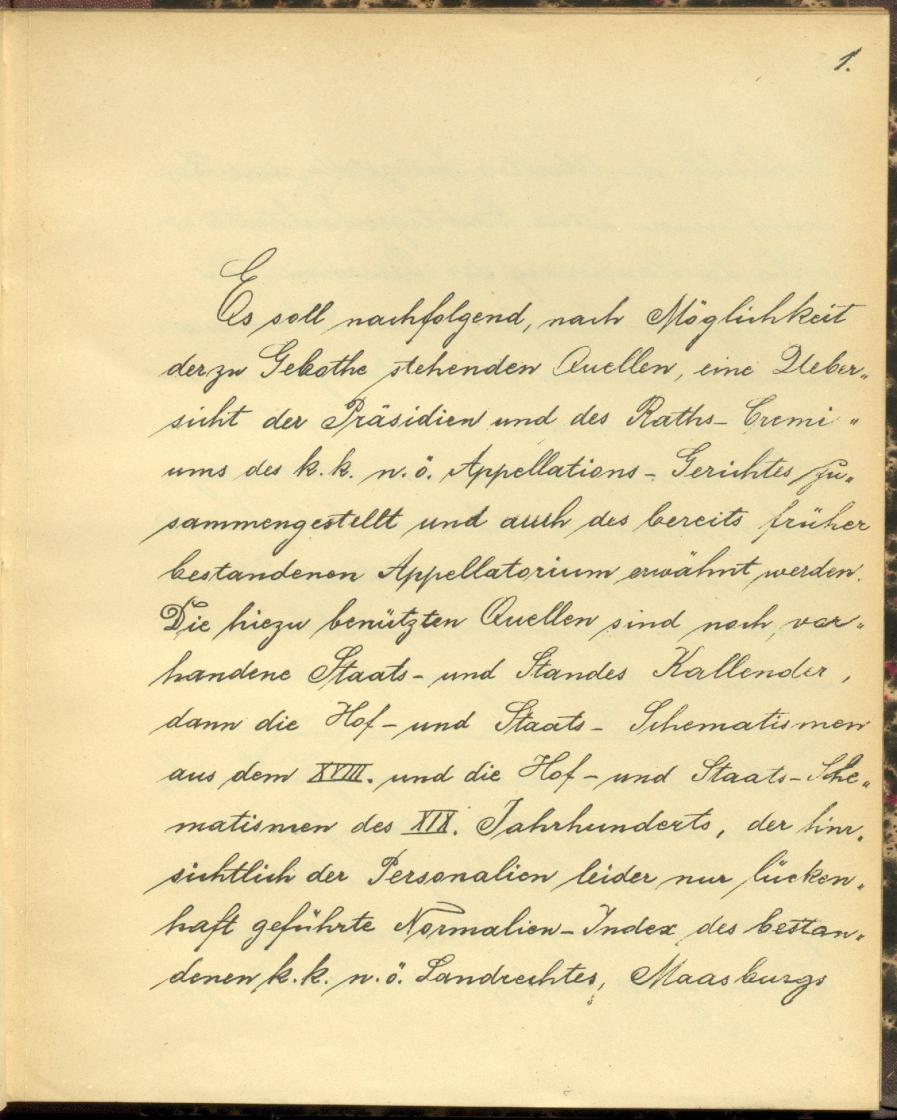 1.
Es soll nachfolgend, nach Möglichkeit
der zu Gebothe stehenden Quellen, eine Ueber„
sicht der Präsidien und des Raths- Gremi„
ums des k. k. n. ö. Appellations- Gerichtes zu„
sammengestellt und auch des bereits früher
bestandenen Appellatorium erwähnt werden.
Die hiezu benützten Quellen sind noch vor„
handene Staats- und Standes Kallender,
dann die Hof- und Staats- Schematismen
aus dem XVIII. und die Hof- und Staats-Sche„
matismen des XIX. Jahrhunderts, der hin„
sichtlich der Personalien leider nur lücken„
haft geführte Normalien-Index des bestan„
denen k. k. n. ö. Landrechtes, Maasburgs